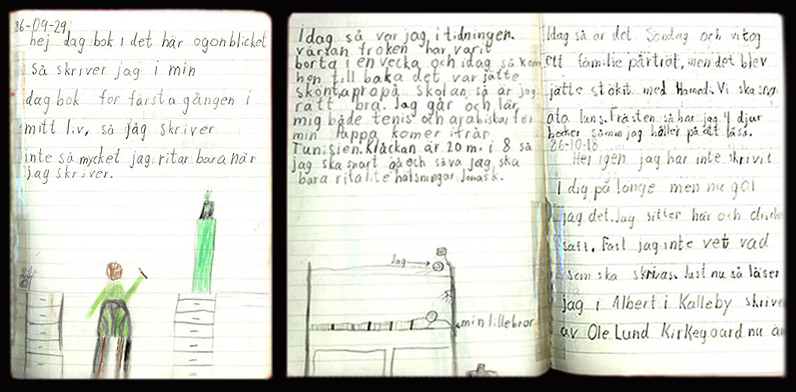 86-09-29
hej dag bok i det här ogonblicket
så skriver jag i min
dag bok for färsta gången i
mitt liv, så jag skriver
inte så mycket jag ritar bara när
jag skriver.
Idag så var jag i tidningen
våran froken har varit
borta i en vecka och idag så kom
hon till baka det var jätte
skönt apropå skolan så är jag
rätt bra. Jag går och lär
mig både tenis och arabiska, för
min pappa komer ifrån
Tunisien. Klåckan är 20 m. i 8 så
jag ska snart gå och såva jag ska
bara rita lite hälsningar Jonas k.
Jag
min lillebror
Idag så är det Söndag och vi tog
ett familie pårträt, men det blev
jätte stökit med Hamadi. Vi ska snart
äta luns. Frästen så har jag 4 djur
böcker såmm jag håller på att läsa.
86-10-18
Hej igen jag har inte skrivit
i dig på länge men nu gör
jag det. Jag sitter här och dricker
saft. Fast jag inte vet vad
som ska skrivas. Just nu så läser
jag i Albert i Kalleby skriven
av Ole Lund Kirkegaard nu är